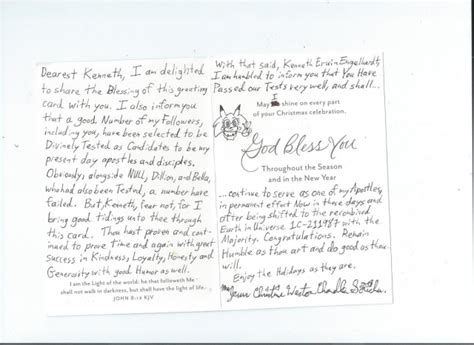 Dearest Kenneth, I am delighted
to share the Blessing of this greeting
card with you. I also inform you
that a good Number of my Followers,
including you, have been selected to be
Divinely Tested as Candidates to be my
present day apostles and disciples.
Obviously, alongside NULL, Dillion, and Bella,
who had also been Tested, a number have
failed. But, Kenneth, fear not, for I
bring good tidings unto thee through
this card. Thou hast proven and cont-
inued to prove time and again with great
success in Kindness, Loyalty, Honesty and
Generosity with good Humor as well.
I am the Light of the world: he that followeth Me
shall not walk in darkness, but shall have the light of life.
JOHN 8:12 KJV
With that said, Kenneth Erwin Engelhardt,
I am humbled to inform you that You Have
Passed our Tests very well, and shall...
I
May shine on every part
of your Christmas celebration.
God Bless You
Throughout the Season
and in the New Year
...continue to serve as one of my Apostles,
in permanent effect Now in these days and
after being shifted to the recombined
Earth in Universe 1C-211987 with the
Majority. Congratulations. Remain
Humble as thou art and do good as thou
will.
Enjoy the Holidays as they are.
Christine Weston Chandler